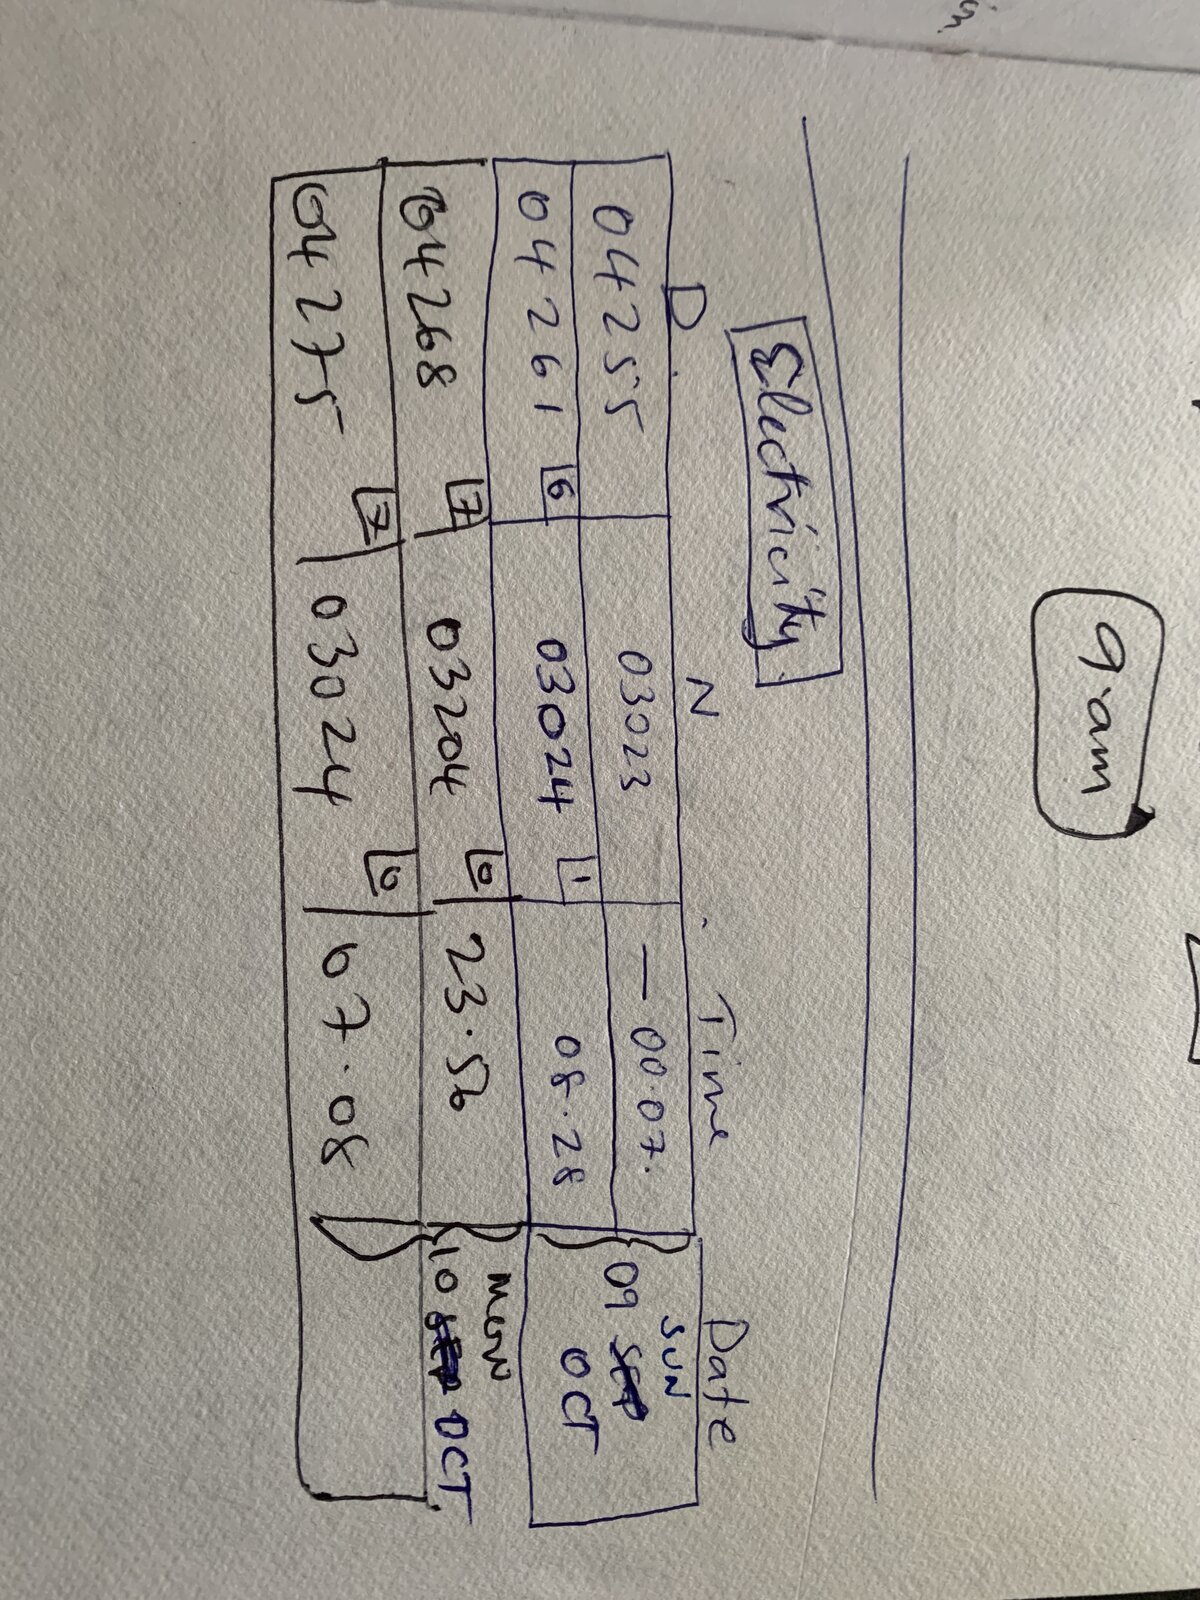 9.am
Electricity
D. N Time Date
04255 03023 — 00.07. SUN
04261 6 03024 1 08.28 09 OCT
04268 7 03204 0 23.56 MON
10 SEP OCT
04275 7 03024 0 07.08